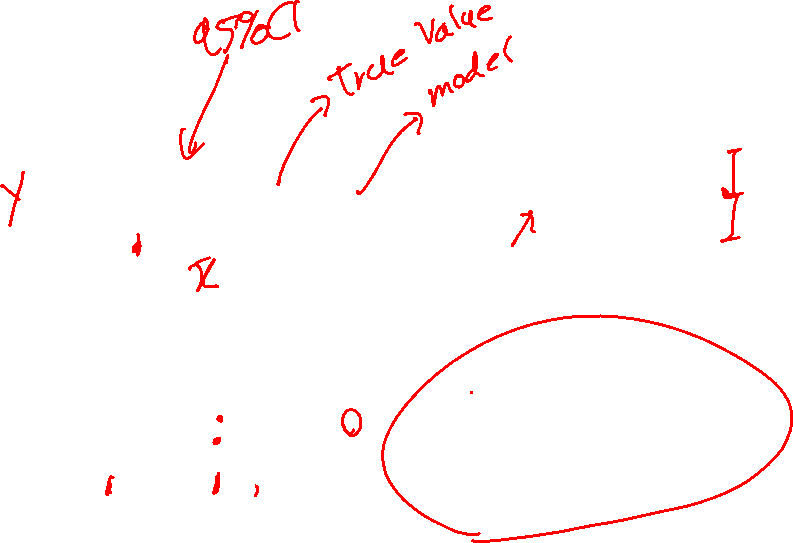 95%CI
True Value
model
y
x
0